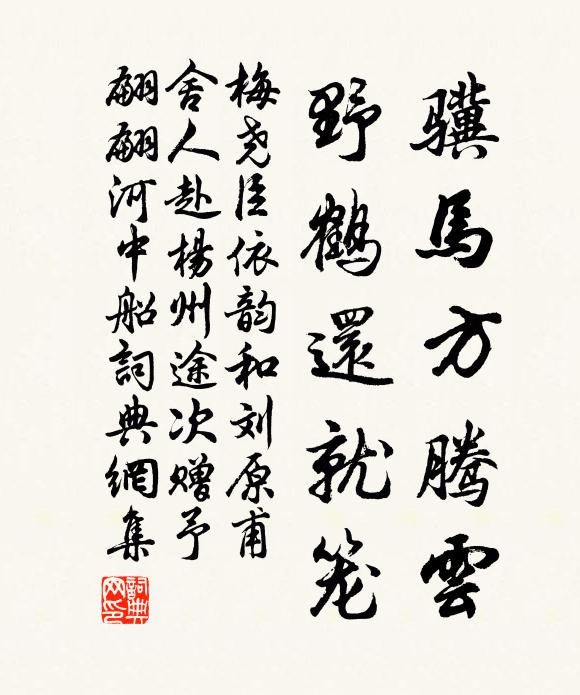 骥馬方腾雲
野鶴還就笼
梅尧臣依韵和刘原甫
舍人赴楊州途次赠予
翩翩河中船詞典網集
詞典
网印